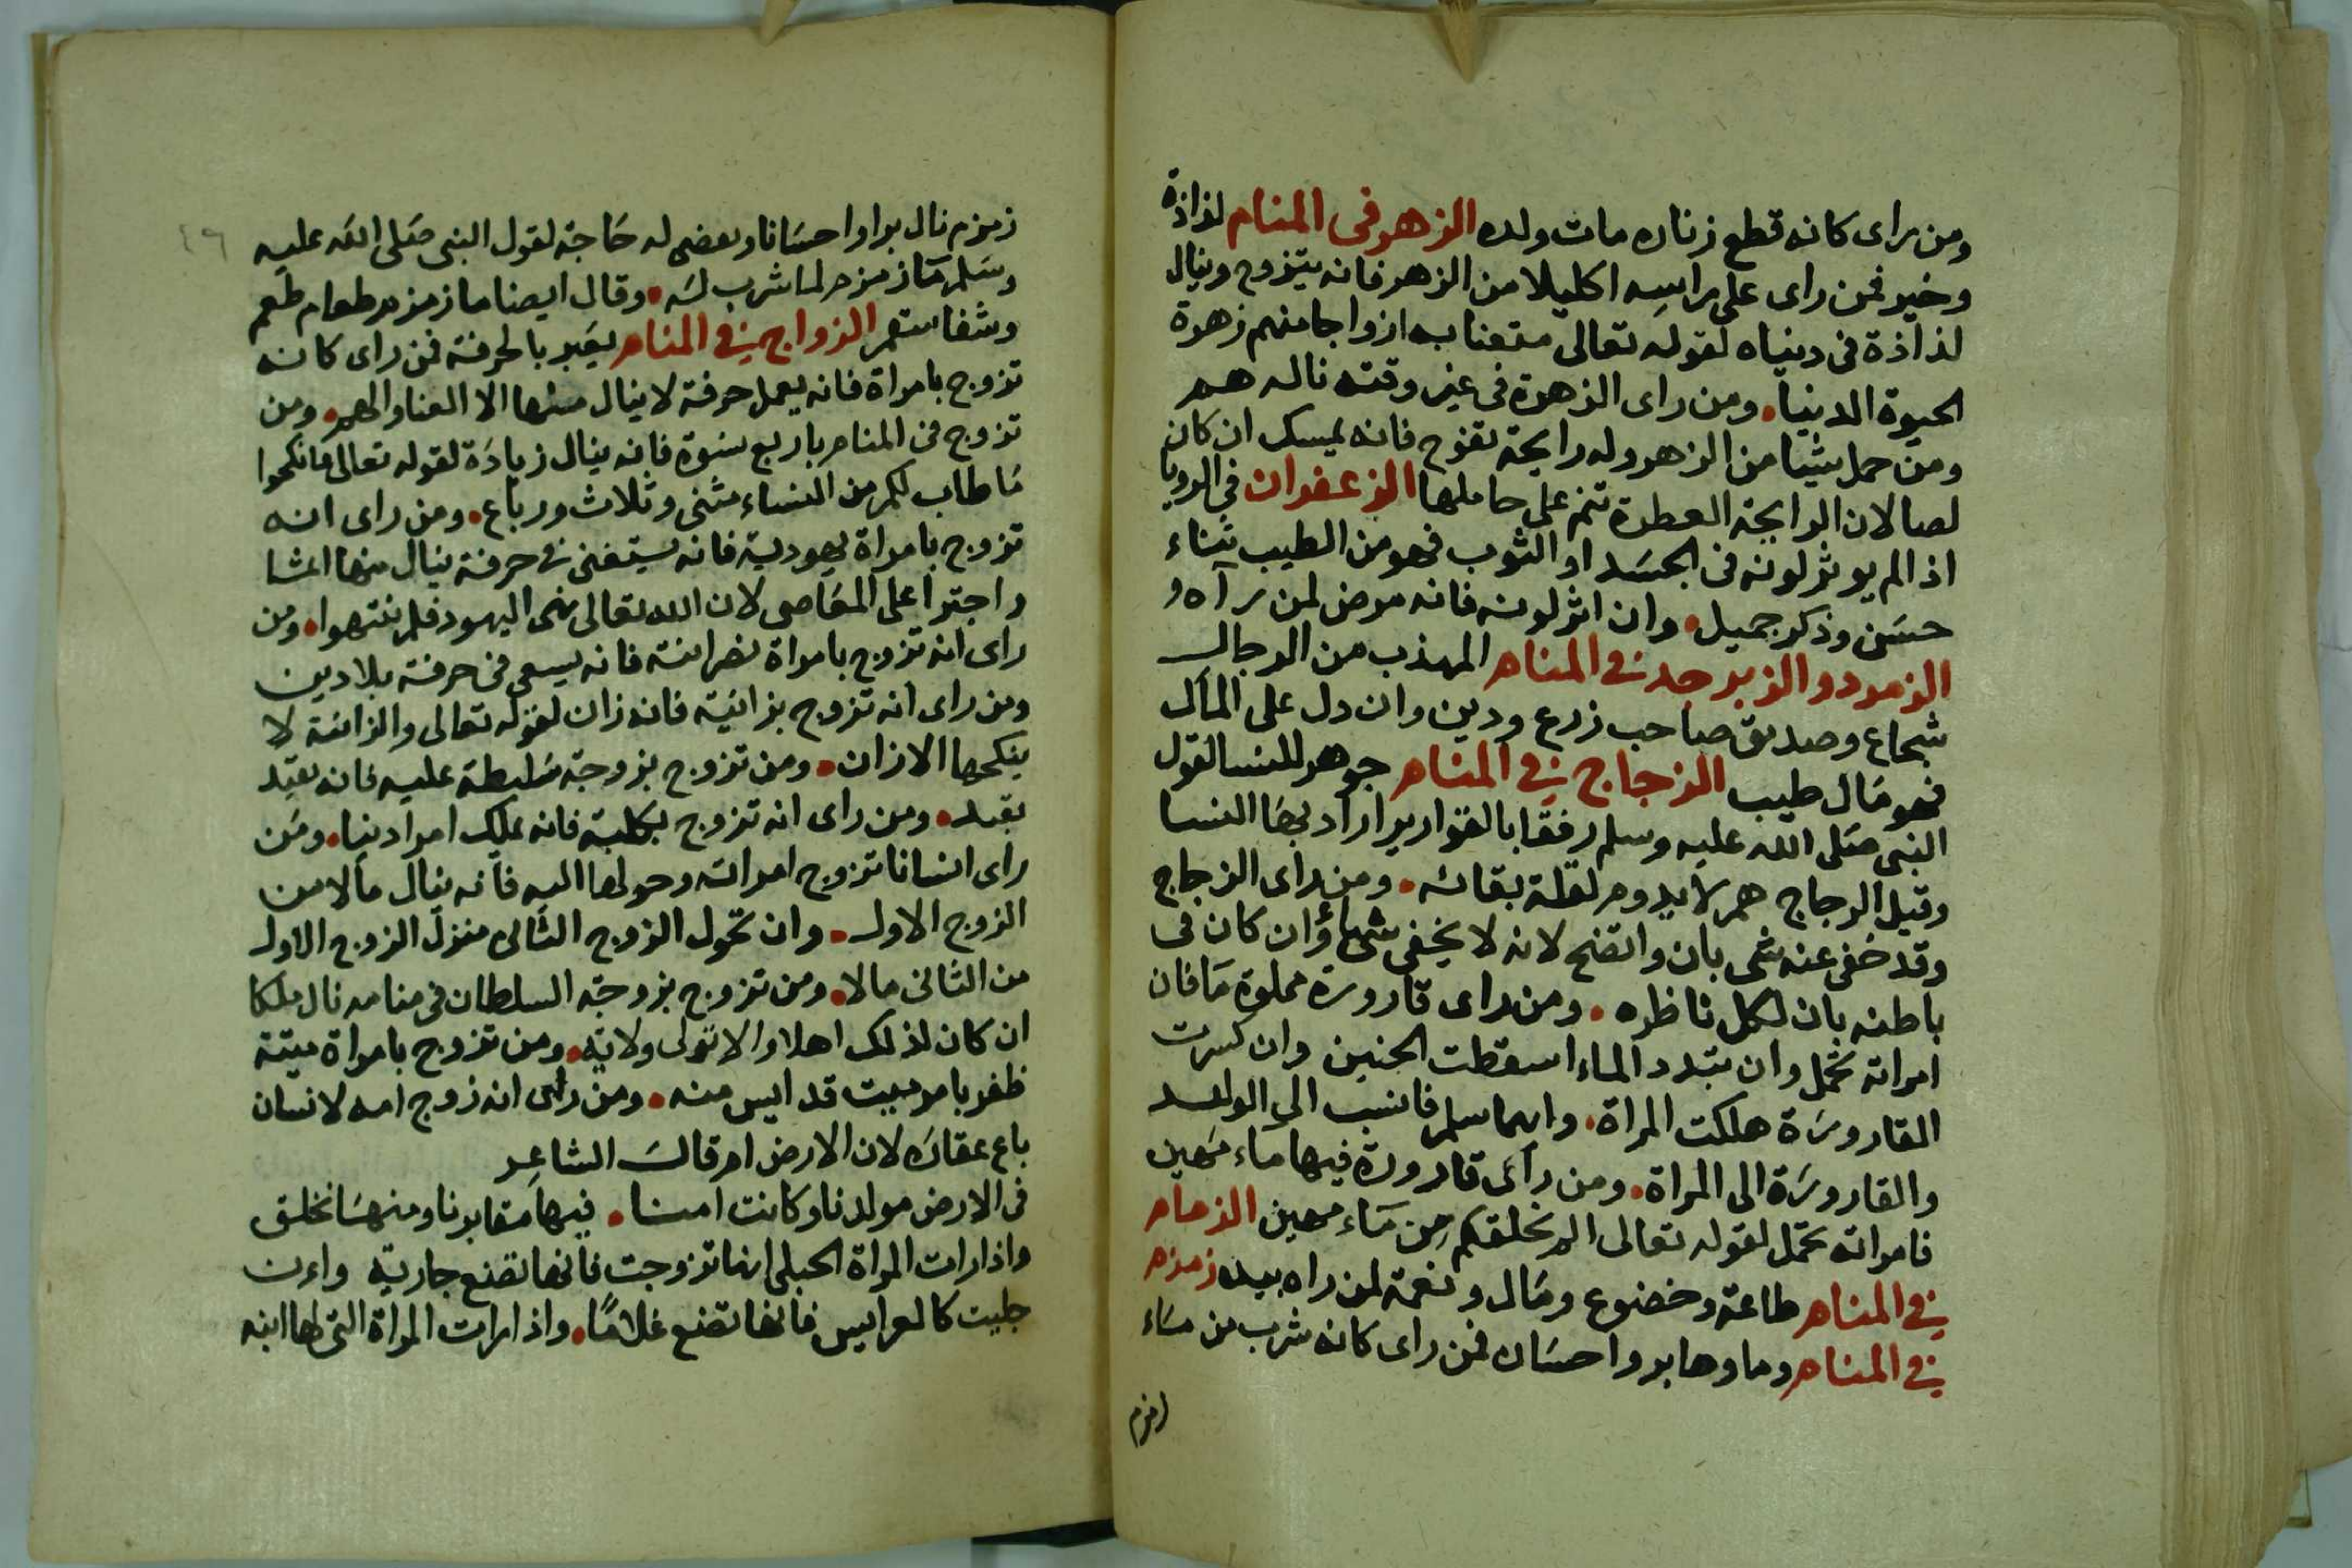 ومن راى كانه قطع زناره مات ولده الزهر فى المنام لذاذة
وخير فمن راى على راسه اكليلا من الزهر فانه يتزوج وينال
لذاذة فى دنياه لقوله تعالى متعنا به ازواجا منهم زهرة
الحيوة الدنيا. ومن راى الزهرة فى غير وقته ناله هم
ومن حمل شيا من الزهر وله رايحة تفوح فانه يمسك ان كان
لصا لان الرايحة العطرة تنم على حاملها الزعفران فى الرويا
اذا لم يوثر لونه فى الجسد او الثوب فهو من الطيب ثناء
حسن وذكر جميل. وان اثر لونه فانه مرض لمن رآه و
الزمرد والزبرجد فى المنام المهذب من الرجال
شجاع وصديق صاحب زرع ودين وان دل على المال
فهو مال طيب الزجاج فى المنام جوهر للنسا لقول
النبى صلى الله عليه وسلم رفقا بالقوارير اراد بها النسا
وقيل الزجاج هم لا يدوم لقلة بقائه. ومن راى الزجاج
وقد خفى عنه شى بان واتضح لانه لا يخفى شياء وان كان فى
باطنه بان لكل ناظره. ومن راى قارورة مملوة ما فان
امراته تحمل وان تبدد الماء اسقطت الجنين وان كسرت
القارورة هلكت المراة. وايهما سلم فانسب الى الولد
والقارورة الى المراة. ومن رآى قارورة فيها ماء مهين
فامراته تحمل لقوله تعالى الم نخلقكم من ماء مهين الزمام
فى المنام طاعة وخضوع ومال ونعمة لمن راه بيده زمزم
فى المنام وماوها بر واحسان فمن راى كانه شرب من ماء
زمزم
٤٩
زمزم نال برا واحسانا وبعضى له حاجة لقول النبى صلى الله عليه
وسلم ما زمزم لما شرب له. وقال ايضا ما زمزم طعام طعم
وشفا سقم الزواج فى المنام يعبر بالحرفة فمن راى كانه
تزوج بامراة فانه يعمل حرفة لا ينال منها الا العنا والهم. ومن
تزوج فى المنام باربع نسوة فانه ينال زيادة لقوله تعالى فانكحوا
ما طاب لكم من النساء مثنى وثلاث ورباع. ومن راى انه
تزوج بامراة يهودية فانه يستغنى فى حرفة ينال منها
واجترا على المعاصى لان الله تعالى نهى اليهود فلم ينتهوا. ومن
راى انه تزوج بامراة نصرانية فانه يسعى فى حرفة بلا دين
ومن راى انه تزوج بزانية فانه زان لقوله تعالى والزانية لا
ينكحها الا زان. ومن تزوج بزوجة سليطة عليه فانه يقيد
بقيد. ومن راى انه تزوج بكلبة فانه يملك امرا دنيا. ومن
راى انسانا تزوج امراته وحولها اليه فانه ينال مالا من
الزوج الاول. وان تحول الزوج الثانى منزل الزوج الاول
من الثانى مالا. ومن تزوج بزوجة السلطان فى منامه نال ملكا
ان كان لذلك اهلا والا تولى ولاية. ومن تزوج بامراة ميتة
ظفر بامر ميت قد ايس منه. ومن راى انه زوج امه لانسان
باع عقاره لان الارض ام قال الشاعر
فى الارض مولدنا وكانت امنا. فيها مقابرنا ومنها نخلق
واذا رات المراة الحبلى انها تزوجت فانها تضع جارية وان
جليت كالعرايس فانها تضع غلاما. واذا رات المراة التى لها ابنه